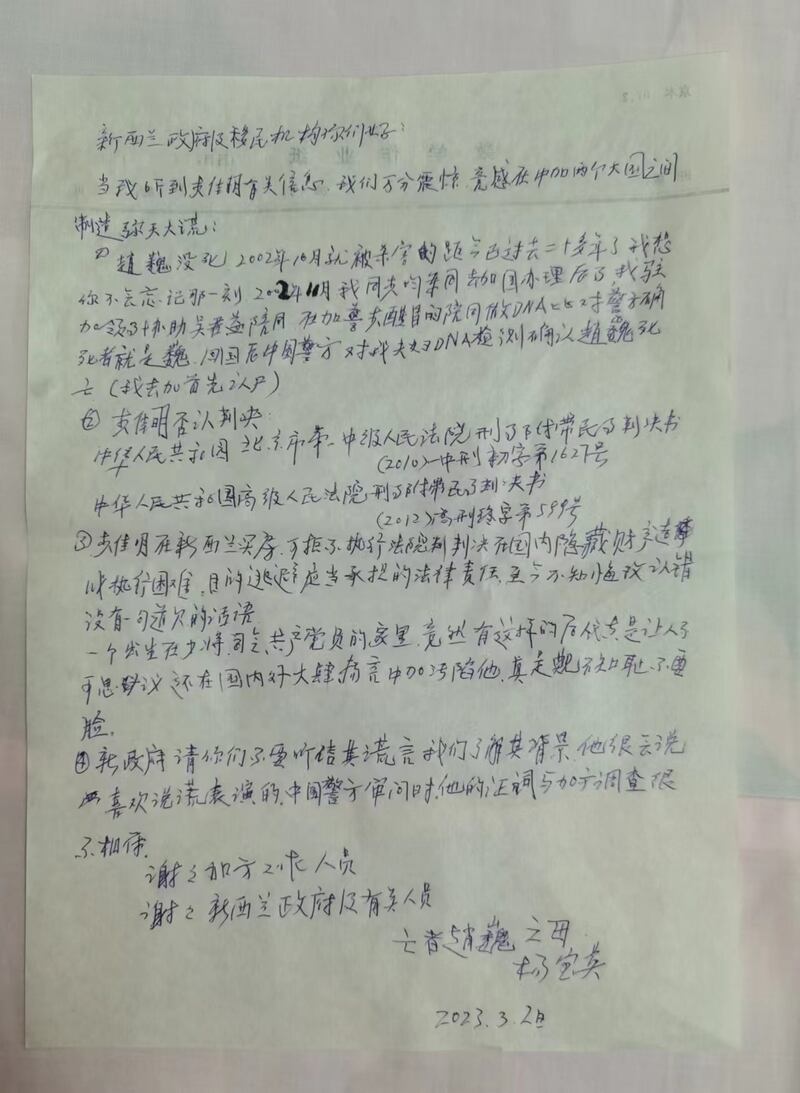 新西兰政府及移民机构你们好：
当我听到麦佳明有关信息，我们万分震惊，竟感在中加两个大国之间
制造弥天大谎：
① 趙巍没死 2002年10月就被杀害的距今已过去二十多年了我想
你不会忘记那一刻 2002年11月我同夫均案同去加国办理后事，我驻
加领事协助吴 陪同 在加警 的陪同做DNA比对警方确
死者就是巍，回国后中国警方对我夫妇DNA检测确认趙巍死
亡（我去加首先认尸）
② 麦佳明否认判决：
中华人民共和国 北京市第一中级人民法院刑事附带民事判决书
(2010)一中刑初字第1627号
中华人民共和国高级人民法院刑事附带民事判决书
(2012)高刑终字第599号
③ 麦佳明在新西兰买房，可拒不执行法院刑判决在国内隐藏财产造
成执行困难，目的逃避应当承担的法律责任，至今不知悔改认错
没有一句道欠的话语
一个出生在少将司令，共产党员的家里，竟然有这样的后代真是让人不
可思议 还在国内外大肆 言中加污陷他，真是 无知耻不要
脸。
④ 新政府请你们不要听信其谎言我们了解其背景，他很会说
喜欢说谎表演的，中国警方审问时，他的证词与加方调查很
不相保，
谢谢加方工作人员
谢谢新西兰政府及有关人员
亡者趙巍之母
杨宝英
2023.3.2日